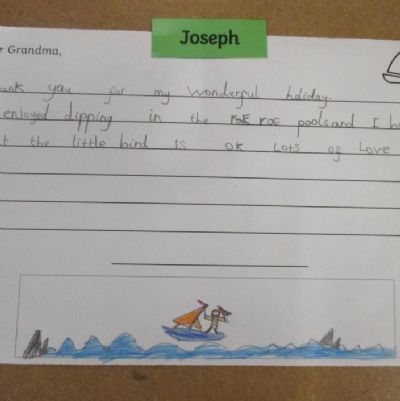 Joseph
r Grandma,
ank you for my wonderful holiday.
enloyed dipping in the poolsand I
t the little bird is ok Lots of Love